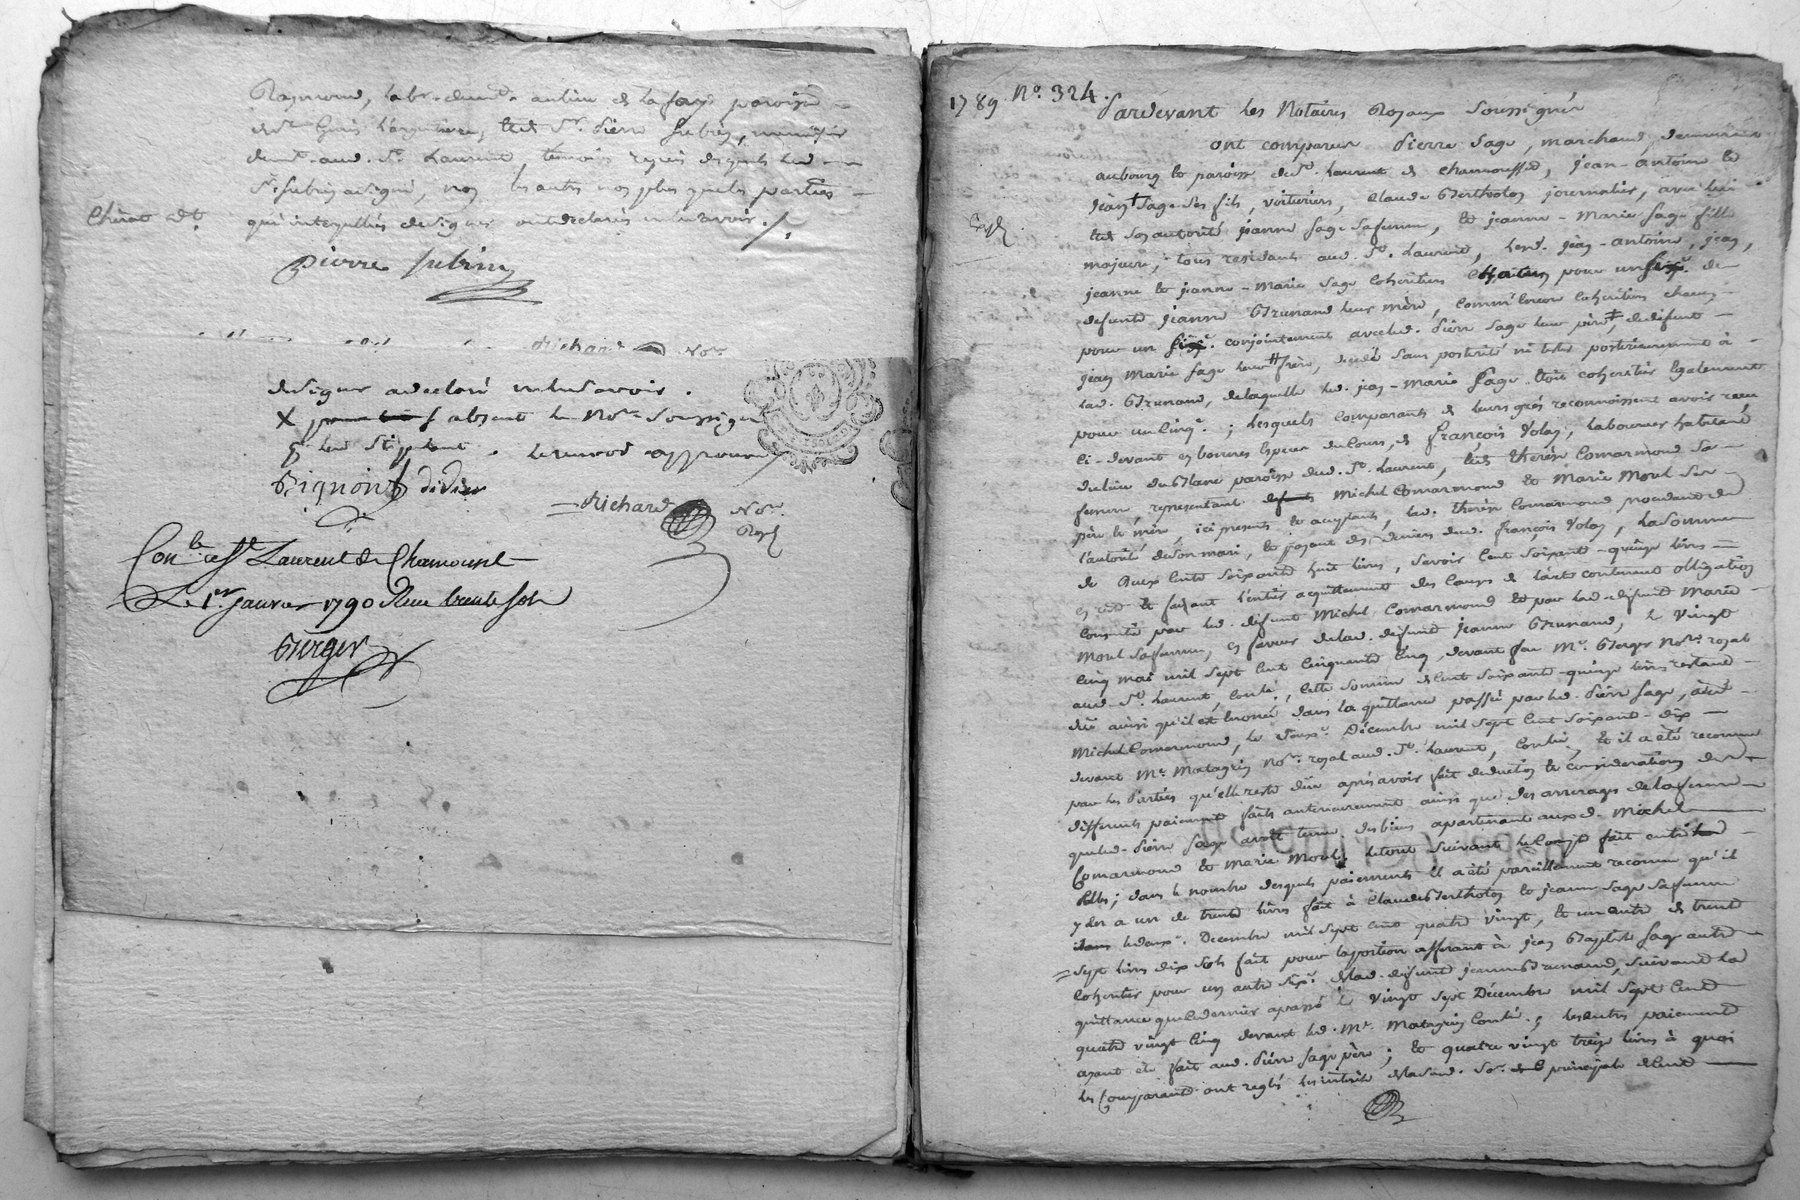 Raymond, lab.r demt. au lieu de la faye paroisse
de St. Genis l'argentiere, & de Sr. Pierre Subrin,
demt. aud. St. Laurent, temoins requis desquels led.
Sr. Subrin a signé, non les autres non plus que les parties
qui interpellées de signer ont declarés ne le savoir.
pierre subrin
Richard Nore.
de signer a declaré ne le savoir.
X absent le Nore. Soussigné
Bignon didier
Richard Nore.
Royl
Con.lé a St. Laurent de Chamousset
Le 1er. janvier 1790 Reçu trente sols
Berger
1789 No. 324.
Pardevant les Notaires Royaux Soussignés
ont comparu Pierre Sage, marchand, demeurant
au bourg & paroisse de St. Laurent de Chamousset, jean-antoine &
jean Sage ses fils, voituriers, Claude Bertholon journalier, avec lui
& de son autorité jeanne Sage sa femme, & jeanne-Marie Sage fille
majeure, tous residants aud. St. Laurent, lesd. jean-antoine, jean,
jeanne & jeanne-Marie Sage coheritiers pour un de
defunte jeanne Brunand leur mère, comm'encore coheritiers chacun
pour un conjointement avec led. Pierre Sage leur père, de defunt
jean Marie Sage leur frère, decedé sans posterité ni tester posterieurement à
lad. Brunand, de laquelle led. jean-Marie Sage étoit coheritier egalement
pour un ; lesquels comparants de leurs grés reconnoissent avoir reçu
ci-devant en bonnes especes de cours, de françois Volay, laboureur habitant
du lieu du Blanc paroisse dud. St. Laurent, & de therèse Comarmond sa
femme, representant Michel Comarmond & Marie Morel ses
père & mère, ici presents & acceptants, lad. therèse Comarmond procedant de
l'autorité de son mari, & payant des deniers dud. françois Volay, la somme
de Deux cents soixante huit livres, savoir cent soixante-quinze livres
en reste & faisant l'entier acquittement des causes de l'acte contenant obligation
consentie par led. defunt Michel Comarmond & par lad. defunte Marie
Morel sa femme, en faveur de lad. defunte jeanne Brunand, le vingt
cinq mai mil sept cent cinquante cinq, devant feu Me. Berger Nore. royal
aud. St. Laurent, conlé., cette somme de cent soixante-quinze livres restant
düe ainsi qu'il est enoncé dans la quittance passée par led. Pierre Sage, aud.
Michel Comarmond, le Decembre mil sept cent soixante-dix
devant Me. Matagrin Nore. royal aud. St. Laurent, conlé, & il a été reconnu
par les Parties qu'elle reste düe après avoir fait deduction & consideration des
differents paiements faits anterieurement ainsi que des arrerages de la ferme
que led. Pierre Sage avoit tenue des biens apartenant auxd. Michel
Comarmond & Marie Morel. Le tout suivant le compte fait entre
elles; dans le nombre desquels paiements il a été pareillement reconnu qu'il
y en a un de trente livres fait à Claude Bertholon & jeanne Sage sa femme
le deux Decembre mil sept cent quatre vingt, & un autre de trente
sept livres dix sols fait pour la portion afferant à jean Baptiste Sage autre
coheritier pour un autre de lad. defunte jeanne Brunand, suivant la
quittance que ce dernier a passé le vingt sept Décembre mil sept cent
quatre vingt cinq devant led. Me. Matagrin conlé.; les autres paiements
ayant été fait aud. Pierre Sage père; & quatre vingt treize livres à quoi
les Comparants ont reglé les interêts de lad. so. principale de cent